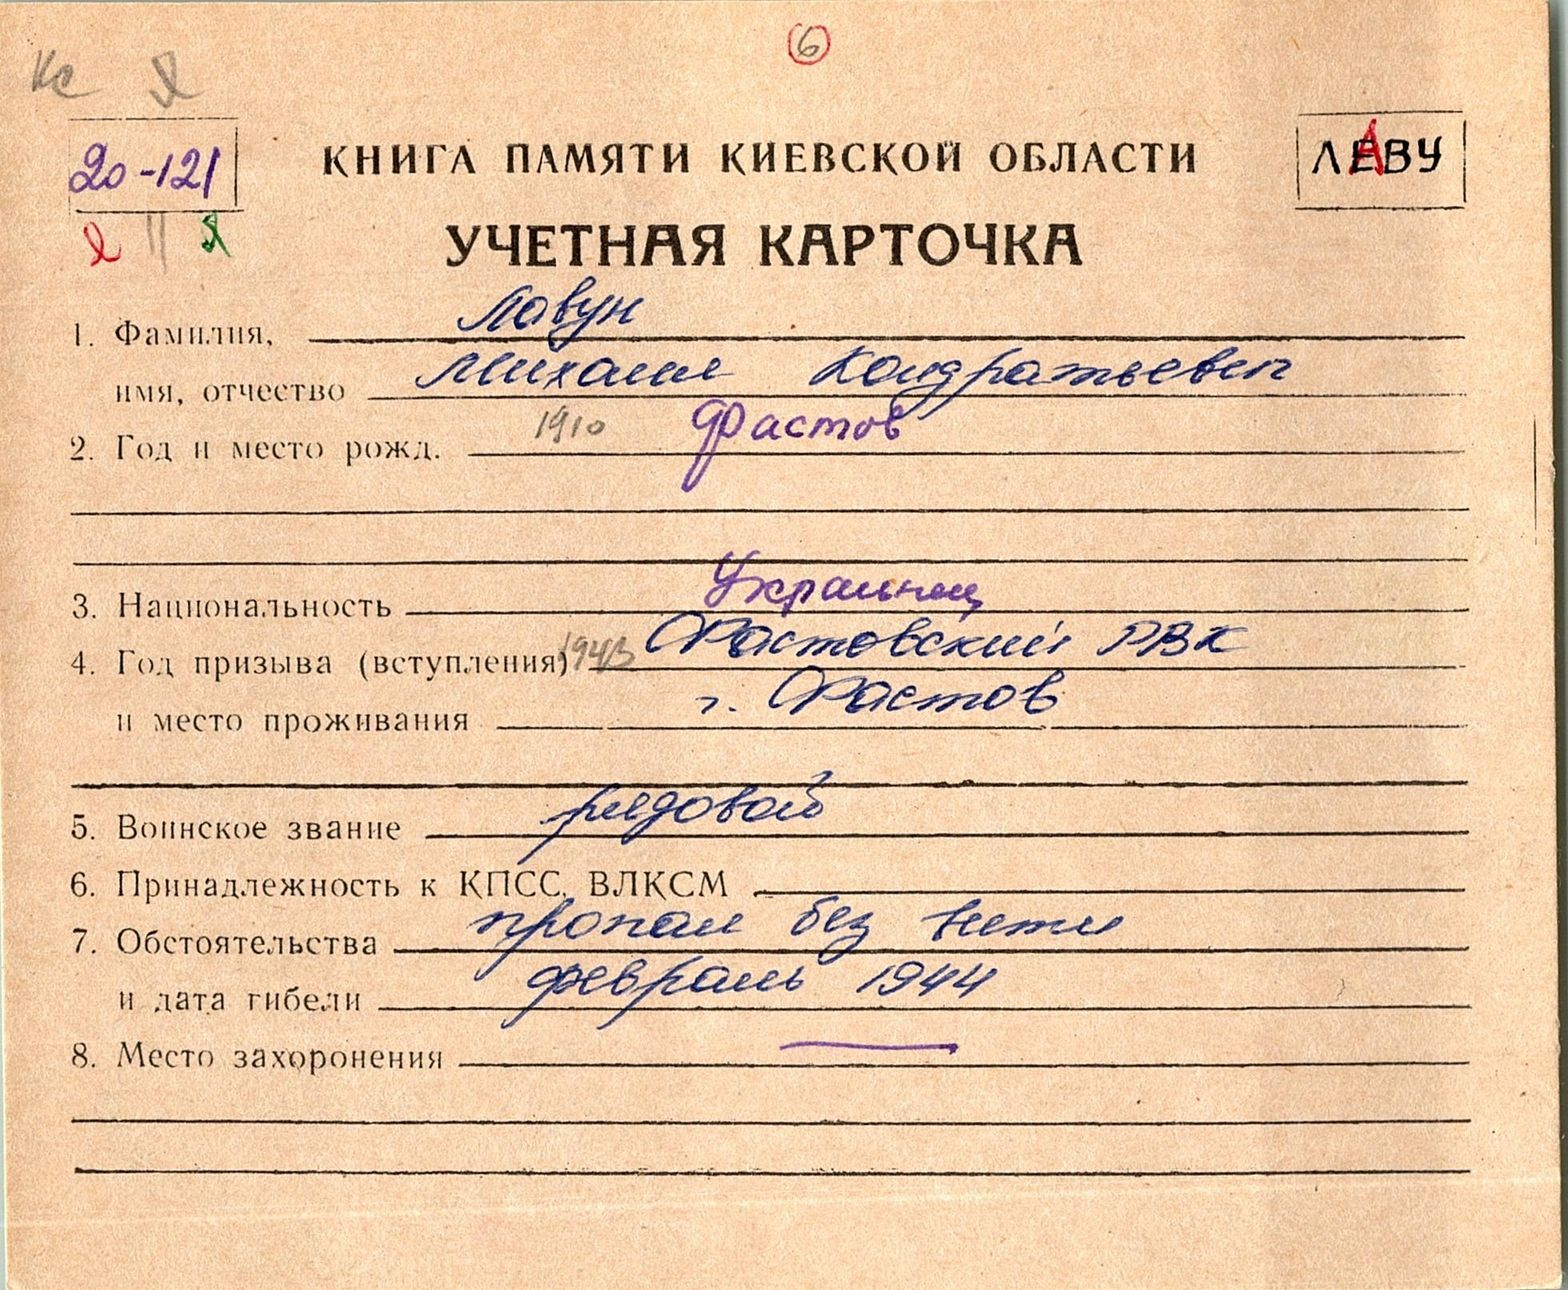 6
Кс Я
20-121
КНИГА ПАМЯТИ КИЕВСКОЙ ОБЛАСТИ
ЛАВУ
УЧЕТНАЯ КАРТОЧКА
1. Фамилия, Лавун
имя, отчество Михаил Кондратьевич
2. Год и место рожд. 1910 Фастов
3. Национальность Украинец
4. Год призыва (вступления) 1943 Фастовский РВК
и место проживания г. Фастов
5. Воинское звание рядовой
6. Принадлежность к КПСС, ВЛКСМ
7. Обстоятельства пропал без вести
и дата гибели февраль 1944
8. Место захоронения —